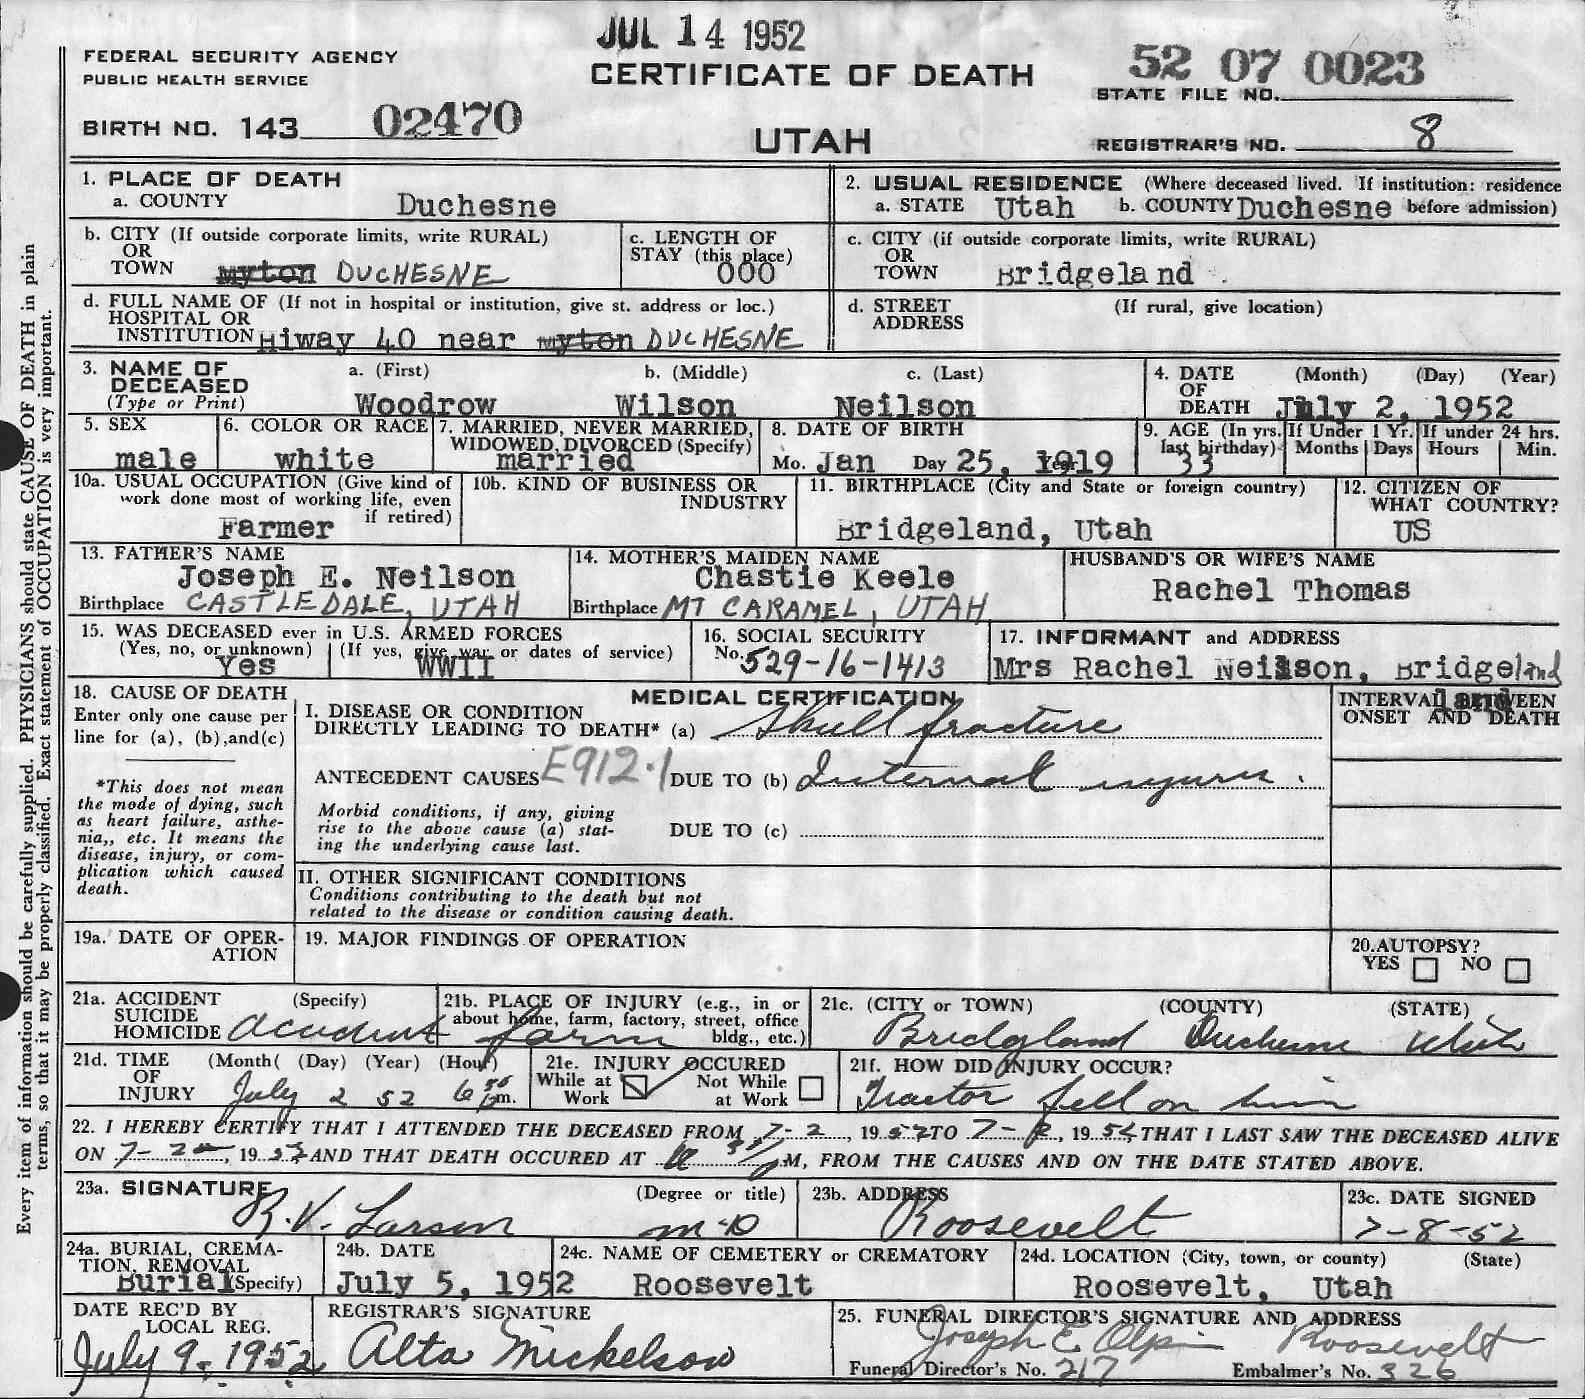 JUL 14 1952
FEDERAL SECURITY AGENCY
PUBLIC HEALTH SERVICE
CERTIFICATE OF DEATH
52 07 0023
STATE FILE NO.
BIRTH NO. 143 02470
UTAH
REGISTRAR'S NO. 8
1. PLACE OF DEATH
a. COUNTY Duchesne
b. CITY (If outside corporate limits, write RURAL)
OR
TOWN Myton DUCHESNE
c. LENGTH OF
STAY (this place)
000
d. FULL NAME OF (If not in hospital or institution, give st. address or loc.)
HOSPITAL OR
INSTITUTION Hiway 40 near Myton DUCHESNE
2. USUAL RESIDENCE (Where deceased lived. If institution: residence
a. STATE Utah b. COUNTY Duchesne before admission)
c. CITY (if outside corporate limits, write RURAL)
OR
TOWN Bridgeland
d. STREET (If rural, give location)
ADDRESS
3. NAME OF a. (First) b. (Middle) c. (Last)
DECEASED
(Type or Print) Woodrow Wilson Neilson
4. DATE (Month) (Day) (Year)
OF
DEATH July 2, 1952
5. SEX
male
6. COLOR OR RACE
white
7. MARRIED, NEVER MARRIED,
WIDOWED, DIVORCED (Specify)
married
8. DATE OF BIRTH
Mo. Jan Day 25, Year 1919
9. AGE (In yrs.
last birthday)
33
If Under 1 Yr.
Months Days
If under 24 hrs.
Hours Min.
10a. USUAL OCCUPATION (Give kind of
work done most of working life, even
if retired)
Farmer
10b. KIND OF BUSINESS OR
INDUSTRY
11. BIRTHPLACE (City and State or foreign country)
Bridgeland, Utah
12. CITIZEN OF
WHAT COUNTRY?
US
13. FATHER'S NAME
Joseph E. Neilson
Birthplace CASTLEDALE, UTAH
14. MOTHER'S MAIDEN NAME
Chastie Keele
Birthplace MT CARAMEL, UTAH
HUSBAND'S OR WIFE'S NAME
Rachel Thomas
15. WAS DECEASED ever in U.S. ARMED FORCES
(Yes, no, or unknown) (If yes, give war or dates of service)
Yes WWII
16. SOCIAL SECURITY
No. 529-16-1413
17. INFORMANT and ADDRESS
Mrs Rachel Neilson, Bridgeland
land
18. CAUSE OF DEATH
Enter only one cause per
line for (a), (b), and(c)
*This does not mean
the mode of dying, such
as heart failure, asthe-
nia,, etc. It means the
disease, injury, or com-
plication which caused
death.
MEDICAL CERTIFICATION
I. DISEASE OR CONDITION
DIRECTLY LEADING TO DEATH* (a) Skull fracture
ANTECEDENT CAUSES E912.1 DUE TO (b) Internal
Morbid conditions, if any, giving
rise to the above cause (a) stat-
ing the underlying cause last.
DUE TO (c)
II. OTHER SIGNIFICANT CONDITIONS
Conditions contributing to the death but not
related to the disease or condition causing death.
INTERVAL BETWEEN
ONSET AND DEATH
19a. DATE OF OPER-
ATION
19. MAJOR FINDINGS OF OPERATION
20. AUTOPSY?
YES NO
21a. ACCIDENT (Specify)
SUICIDE
HOMICIDE accident
21b. PLACE OF INJURY (e.g., in or
about home, farm, factory, street, office
bldg., etc.)
farm
21c. (CITY or TOWN) (COUNTY) (STATE)
Bridgland Duchesne Utah
21d. TIME (Month( (Day) (Year) (Hour)
OF
INJURY July 2 52 6 30 pm.
21e. INJURY OCCURED
While at Work Not While at Work
21f. HOW DID INJURY OCCUR?
Tractor fell on him
22. I HEREBY CERTIFY THAT I ATTENDED THE DECEASED FROM 7-2, 1952 TO 7-2, 1952 THAT I LAST SAW THE DECEASED ALIVE
ON 7-2, 1952 AND THAT DEATH OCCURED AT M, FROM THE CAUSES AND ON THE DATE STATED ABOVE.
23a. SIGNATURE (Degree or title)
R.V. Larsen M-D
23b. ADDRESS
Roosevelt
23c. DATE SIGNED
7-8-52
24a. BURIAL, CREMA-
TION, REMOVAL
Burial (Specify)
24b. DATE
July 5, 1952
24c. NAME OF CEMETERY or CREMATORY
Roosevelt
24d. LOCATION (City, town, or county) (State)
Roosevelt, Utah
DATE REC'D BY
LOCAL REG.
July 9, 1952
REGISTRAR'S SIGNATURE
Alta Mickelson
25. FUNERAL DIRECTOR'S SIGNATURE AND ADDRESS
Joseph E. Olpin Roosevelt
Funeral Director's No. 217 Embalmer's No. 326
Every item of information should be carefully supplied. PHYSICIANS should state CAUSE OF DEATH in plain
terms, so that it may be properly classified. Exact statement of OCCUPATION is very important.